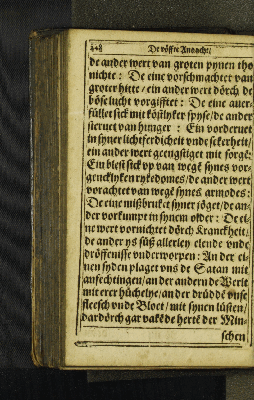 448 De vöffte Andacht/
de ander wert van groten pynen tho
nichte : De eine vorschmachtet van
groter hitte / ein ander wert dörch de
böse lucht vorgifftet : De eine auer-
füllet sick mit köstlyker spyse/ de ander
steruet van hunger : Ein vorderuet
in syner lichtferdicheit vnde sekerheit/
ein ander wert geengstiget mit sorge:
Ein blest sick vp van wege synes vor-
gencklyken rykedomes/ de ander wert
vorachtet van wege synes armodes :
De eine mißbruket syner jöget/ de an-
der vorkumpt in synem older : De ei-
ne wert vornichtet dörch Kranckheit/
de ander ys süß allerley elende vnde
dröffenisse vnderworpen : An der ei-
nen syden plaget vns de Satan mit
anfechtingen/ an der andern de Werlt
mit erer hüchelye/ an der drüdde vnse
fleesch vnde Bloet / mit synen lüsten/
dardörch gar vakede herte der Min-
schen